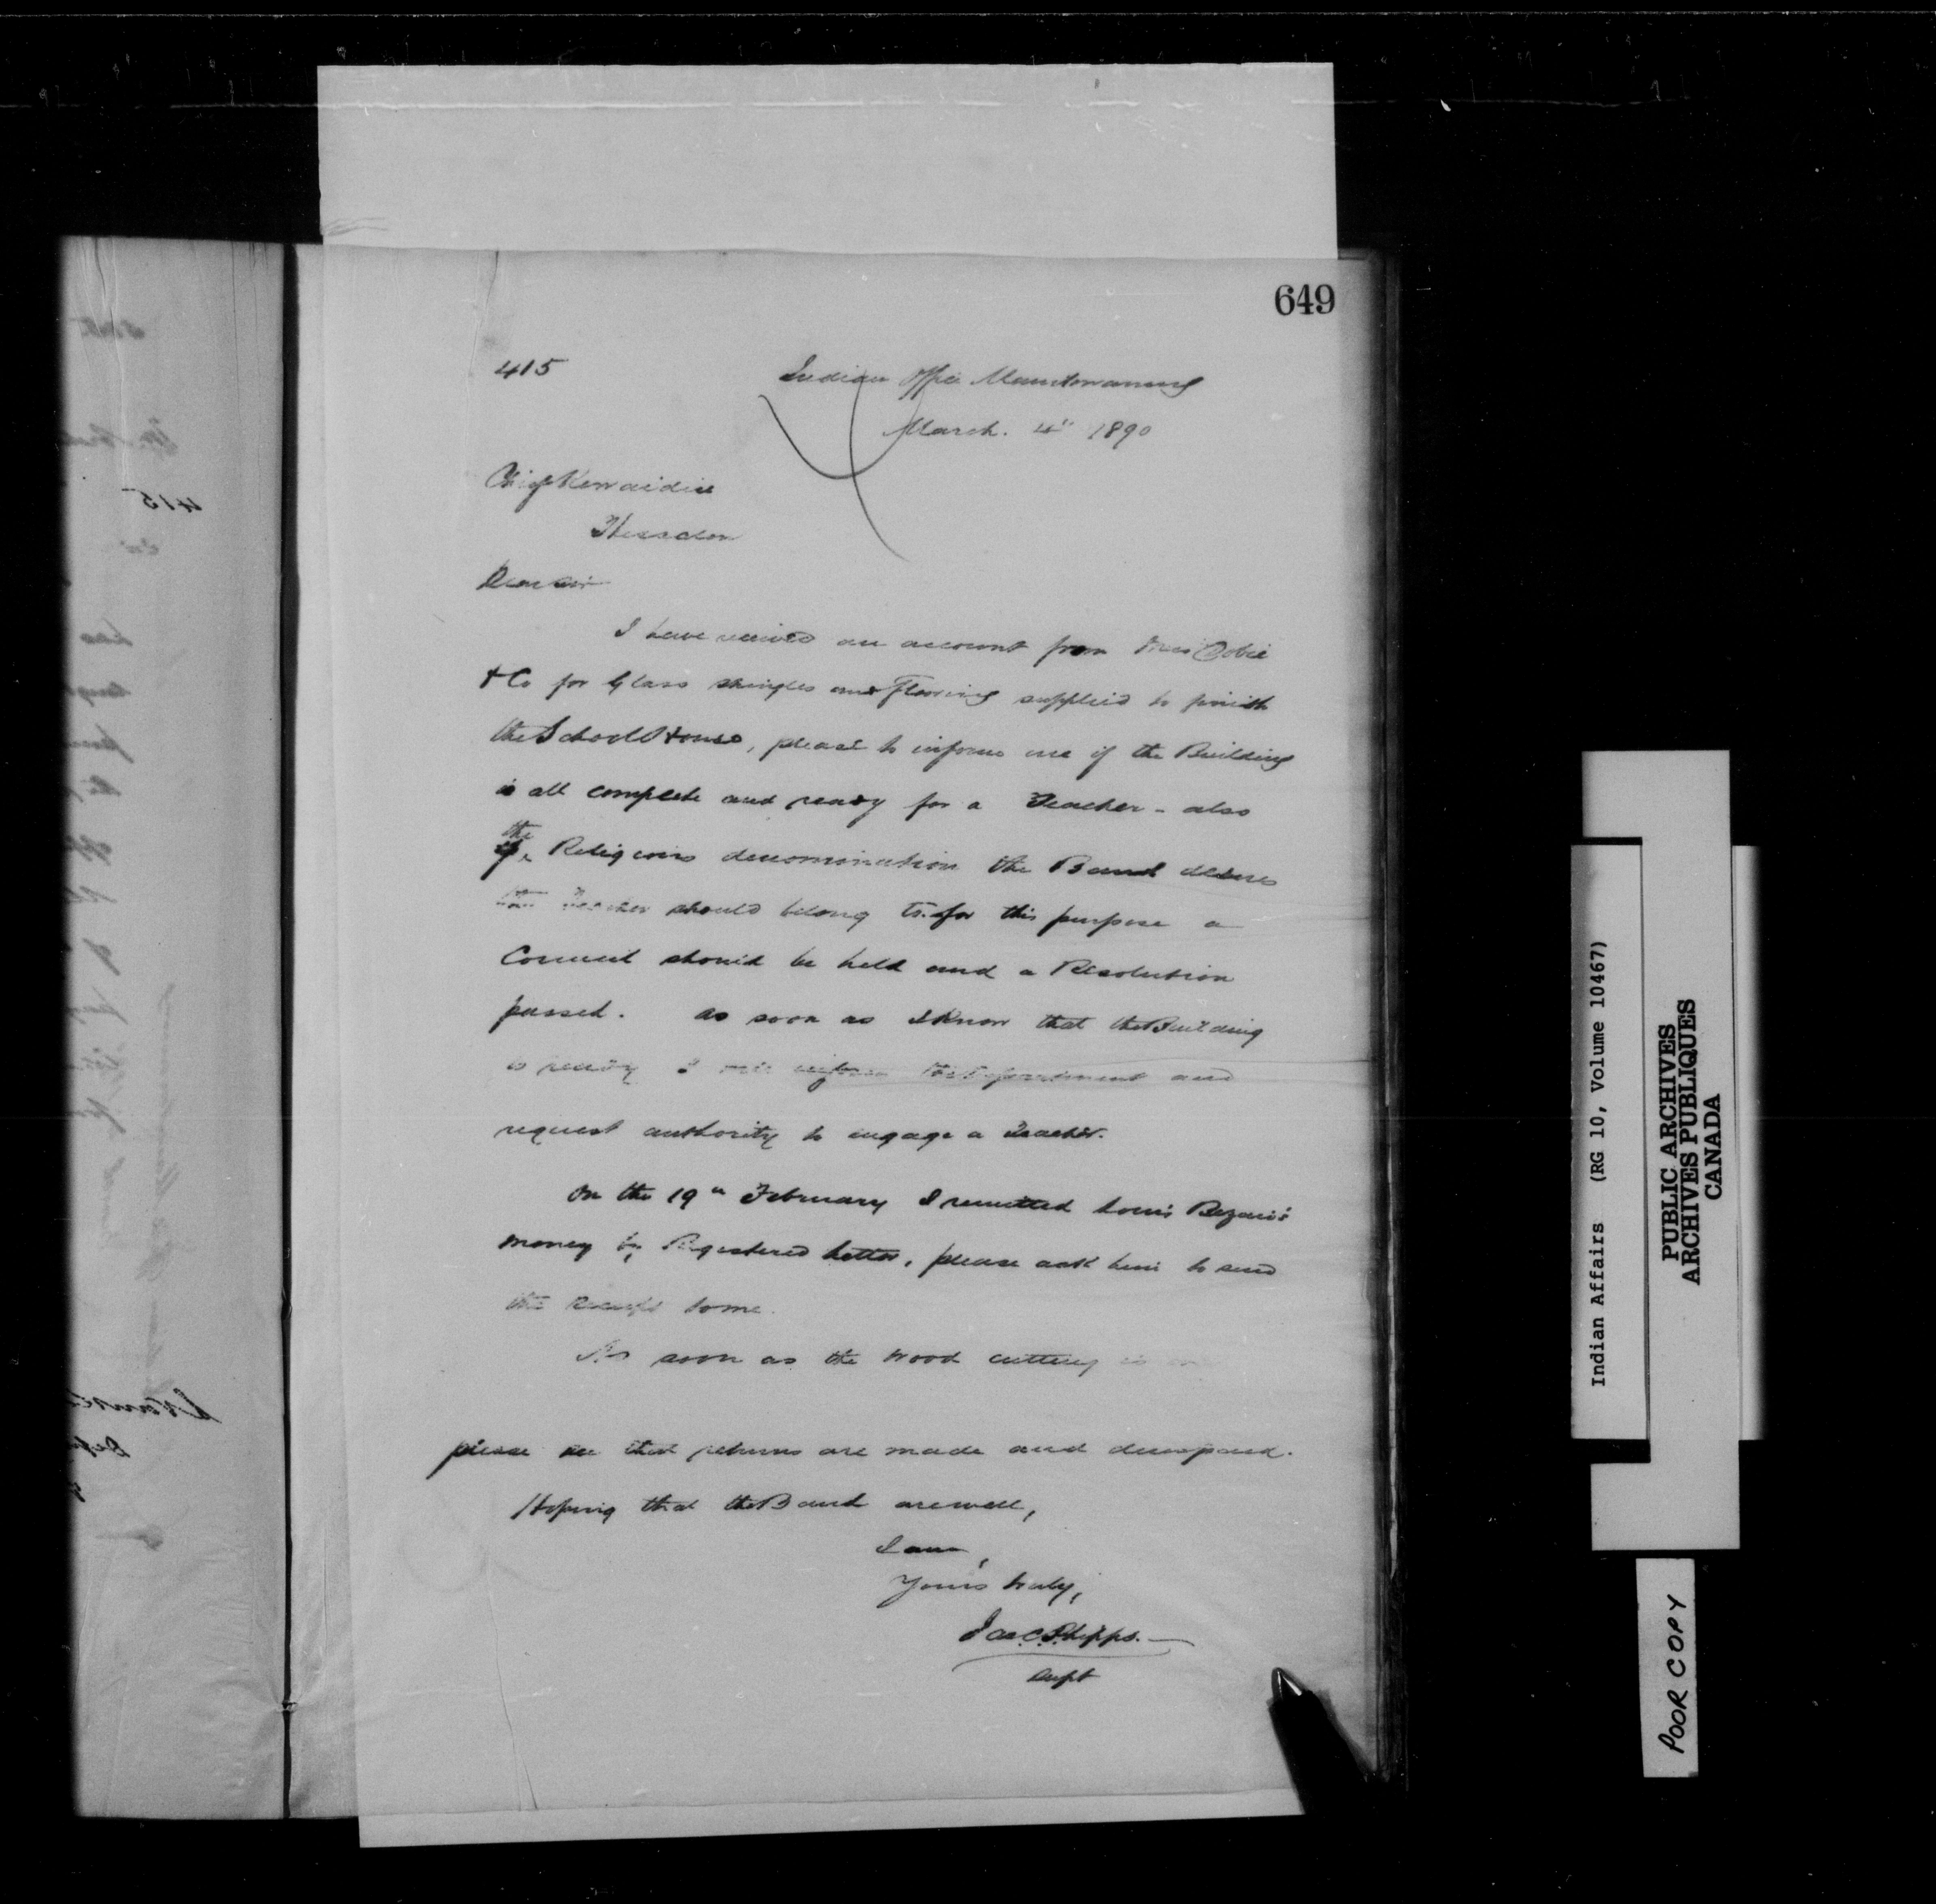 649
415
Indian Office Manitowaning
March. 4" 1890
Chief Kewaidin
Thessalon
Dear Sir
I have received an account from Dobie
& Co for Glass shingles and Flooring supplied to finish
the School House, please to inform me if the Building
is all complete and ready for a Teacher - also
the
Religious denomination the Band desires
the Teacher should belong to. for this purpose a
Council should be held and a Resolution
passed. As soon as I know that the Building
is ready I will inform the Department and
request authority to engage a Teacher.
On the 19th February I remitted Louis
money by Registered letter, please ask him to send
the Receipt to me.
As soon as the wood cutting is
please see that returns are made and
Hoping that the Band are well,
I am,
Yours truly,
Jas. C. Phipps.
Supt
Indian Affairs (RG 10, Volume 10467)
PUBLIC ARCHIVES
ARCHIVES PUBLIQUES
CANADA
POOR COPY